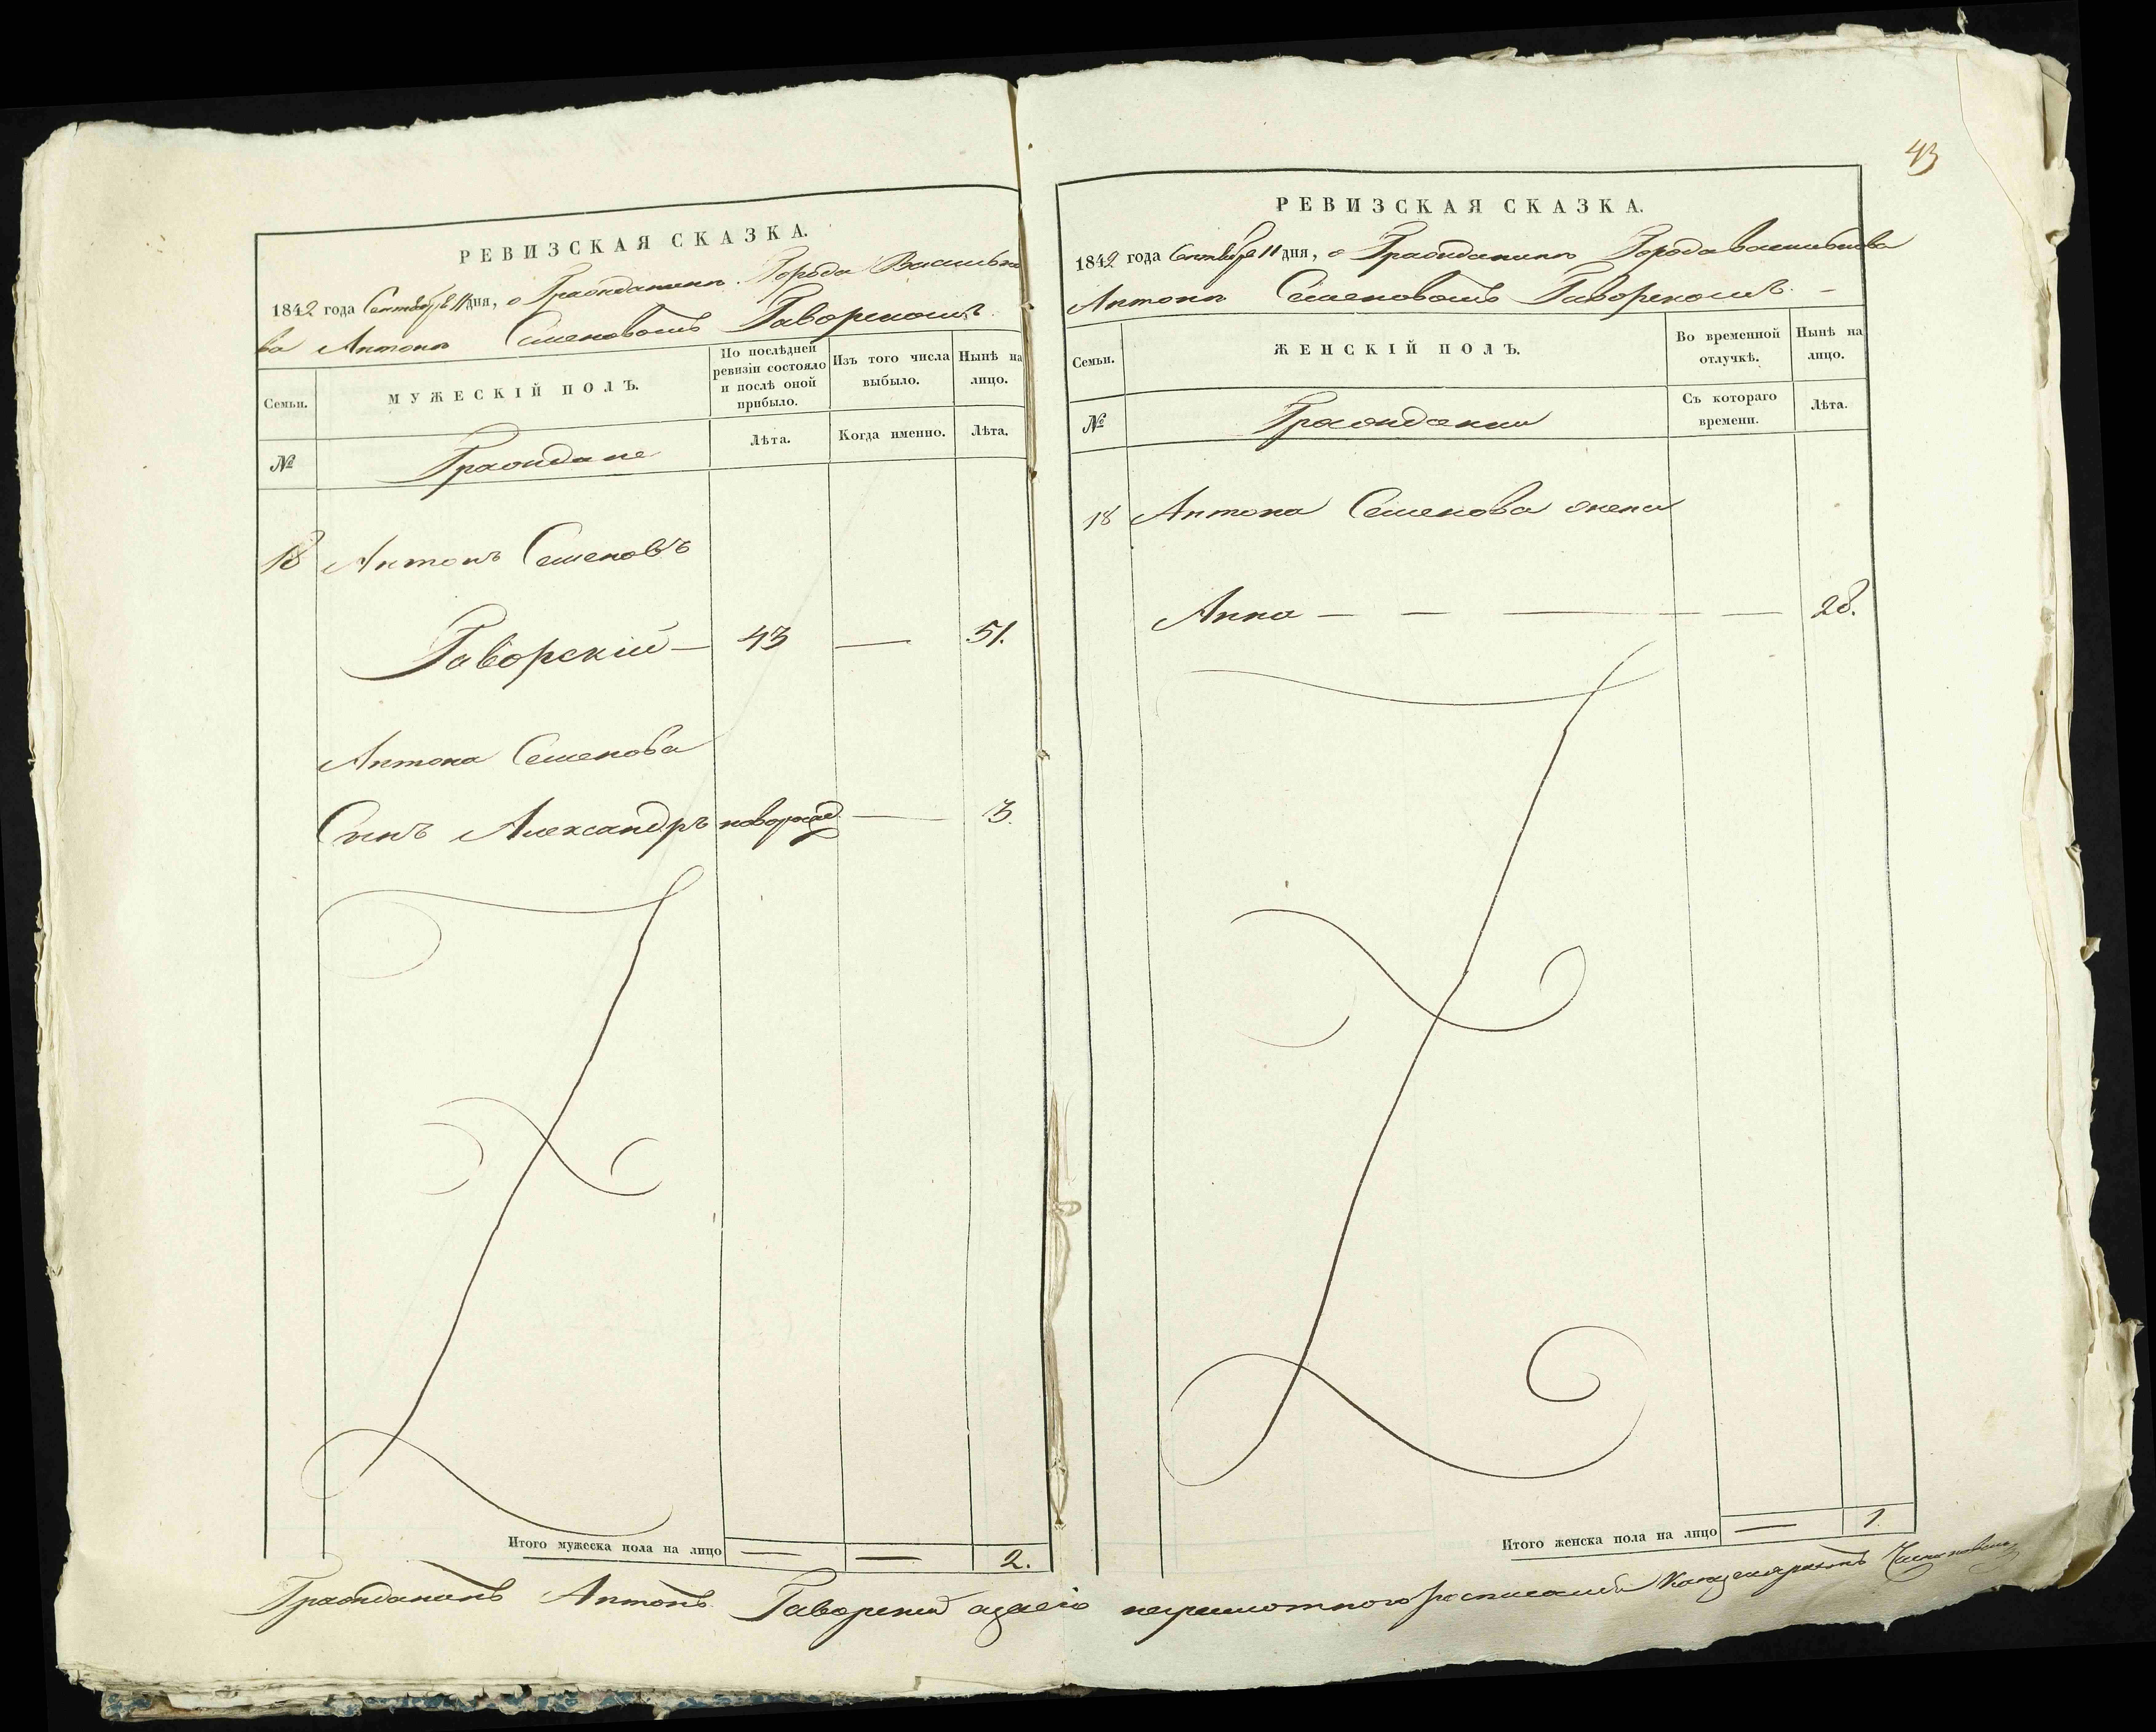 РЕВИЗСКАЯ СКАЗКА.
1842 года Сентября 11 дня, о Гражданинѣ Города Василько
ва Антонѣ Семеновомъ Гаворскомъ.
Семьи.
МУЖЕСКІЙ ПОЛЪ.
По послѣдней ревизіи состояло и послѣ оной прибыло.
Изъ того числа выбыло.
Нынѣ на лицо.
№
Граждане
Лѣта.
Когда именно.
Лѣта.
18 Антонъ Семеновъ
Гаворскій — 43 — 51.
Антона Семенова
Сынъ Александръ новорожд — 3.
Итого мужеска пола на лицо — — 2.
43
РЕВИЗСКАЯ СКАЗКА.
1842 года Сентября 11 дня, о Гражданинѣ Города Василькова
Антонѣ Семеновомъ Гаворскомъ. —
Семьи.
ЖЕНСКІЙ ПОЛЪ.
Во временной отлучкѣ.
Нынѣ на лицо.
№
Гражданки
Съ котораго времени.
Лѣта.
18 Антона Семенова жена
Анна — — — — — 28.
Итого женска пола на лицо — 1.
Гражданинъ Антонъ Гаворский а за его неграмотного росписался Канцеляристъ